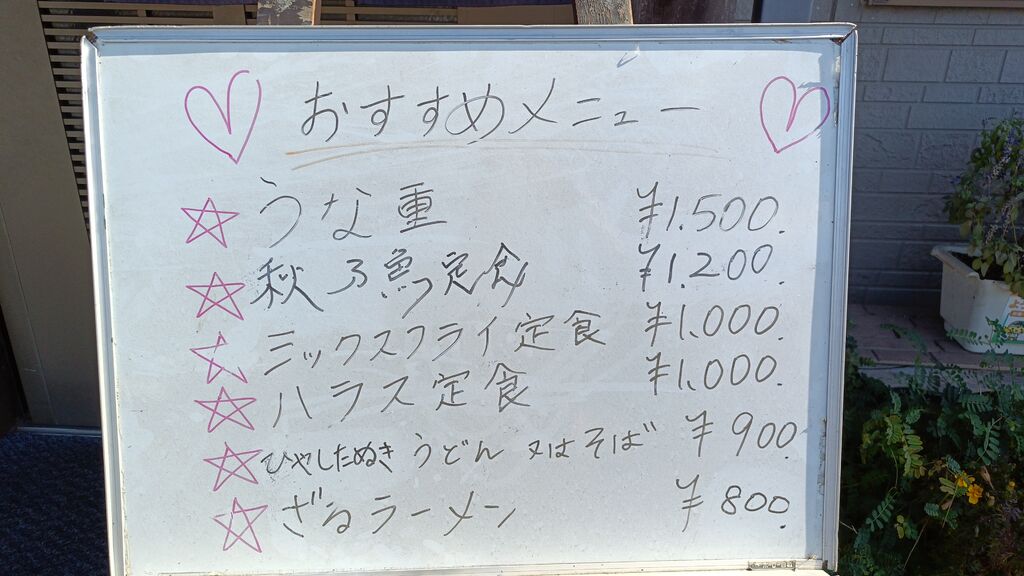 おすすめメニュー
うな重 ¥1.500.
秋刀魚定食 ¥1.200.
ミックスフライ定食 ¥1.000.
ハラス定食 ¥1.000.
ひやしたぬきうどん 又はそば ¥900.
ざるラーメン ¥800.